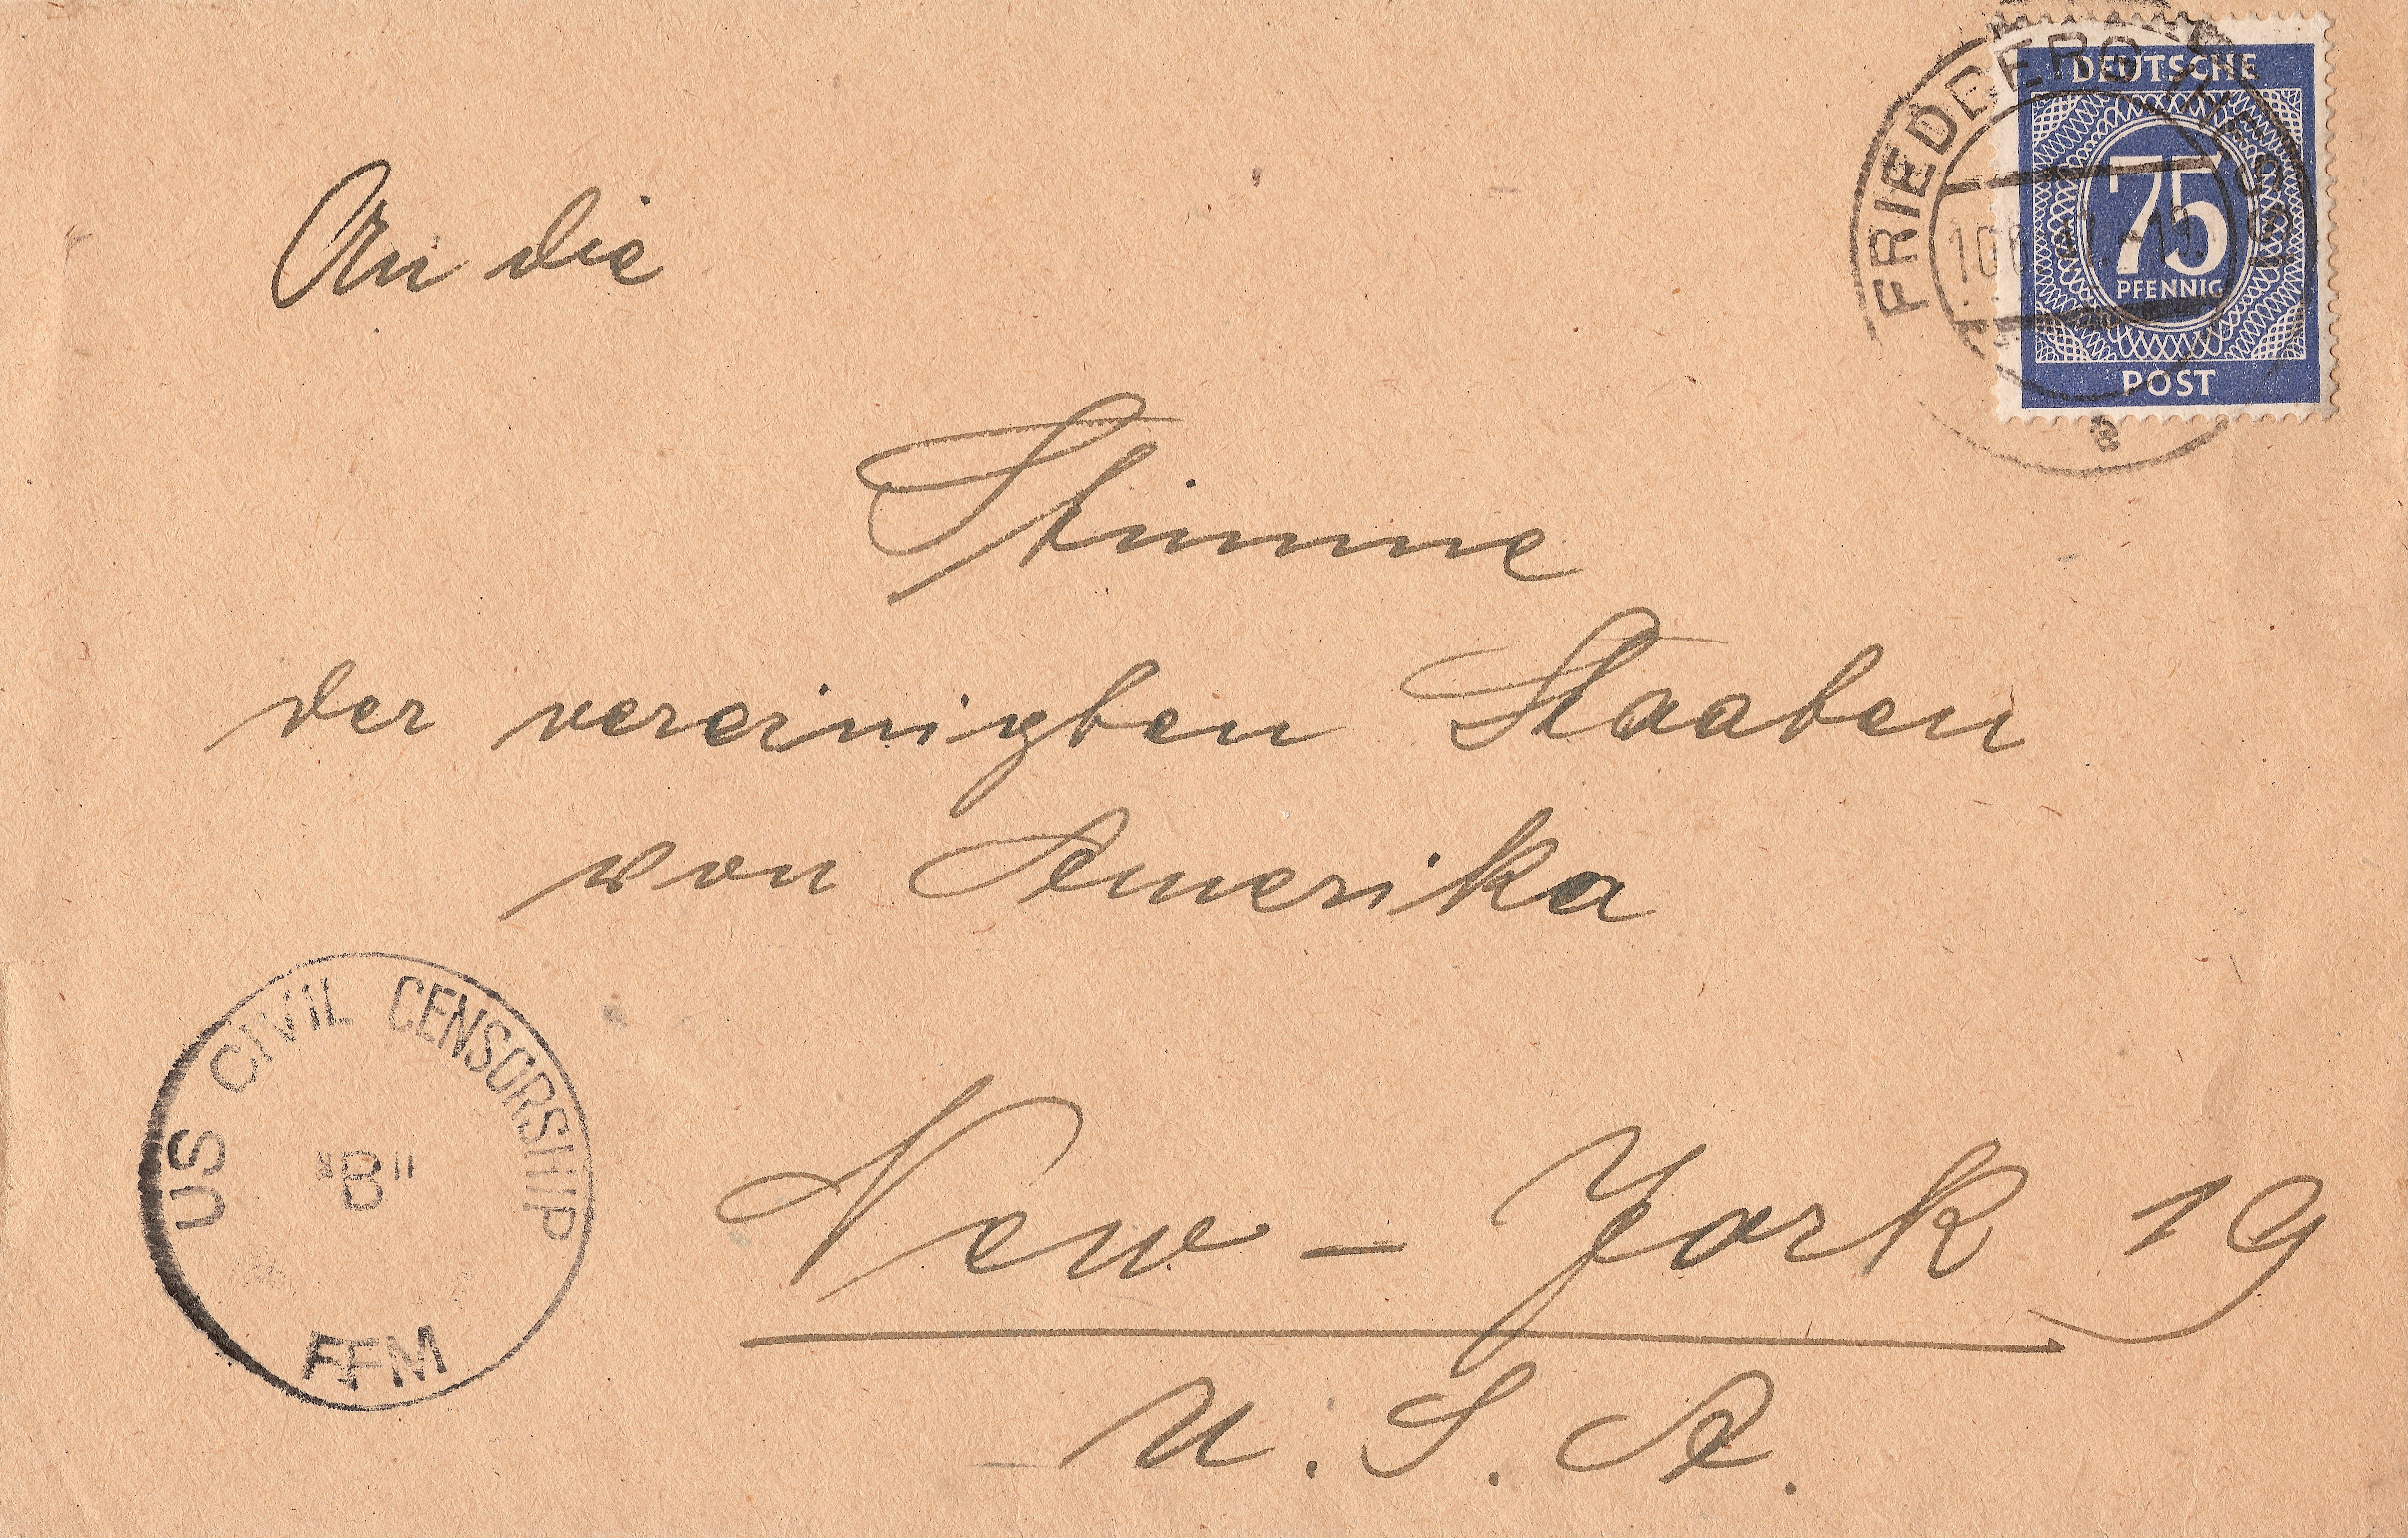 FRIEDBERG (HESS)
DEUTSCHE
75
PFENNIG
POST
a
An die
Stimme
der vereinigten Staaten
von Amerika
US CIVIL CENSORSHIP
"B"
FFM
New – York 19
U.S.A.